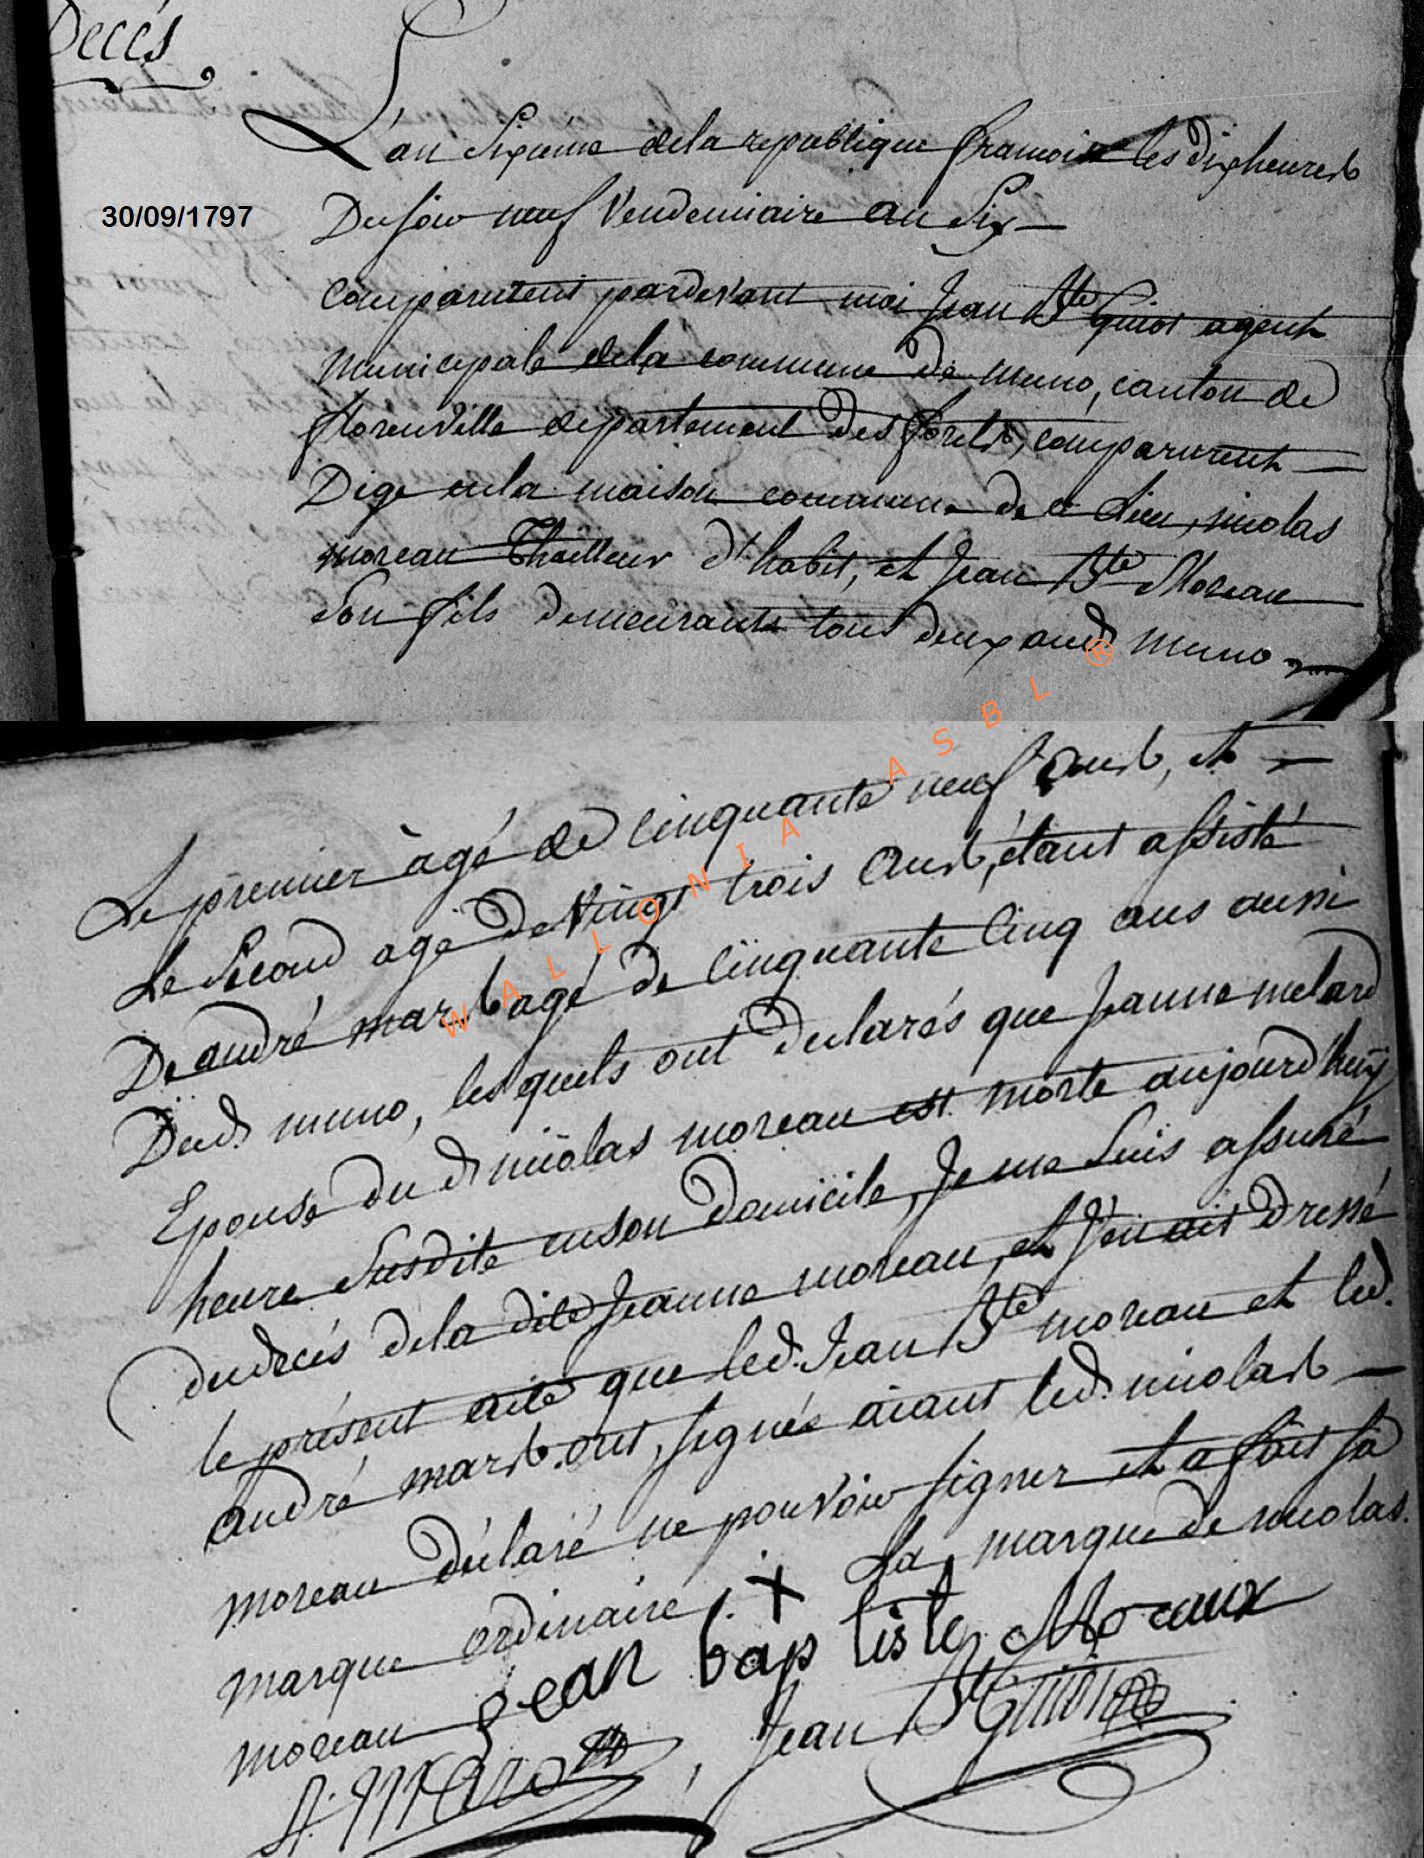 Décès
L'an Sixième de la republique francoise les dix heures
30/09/1797
Du soir neuf Vendemiaire an Six
comparutent pardevant moi Jean Bte Guiot agent
municipale de la commune de muno, canton de
florenville departement des forets, comparurent
Dige en la maison commune de ce Lieu, nicolas
moreau Thailleur d'habit, et Jean Bte Moreau
son fils demeurants tous deux aud muno
Le premier àgé de cinquante neuf ans, et
Le Second agé de Vingt trois ans, étant assisté
De andré mars agé de cinquante cinq ans aussi
Dud muno, les quels ont declarés que Jeanne melard
Epouse du d nicolas moreau est morte aujourd'huÿ
heure Susdite en son domicile, Je me suis assuré
du decés de la dite Jeanne moreau, et J'en ait dressé
le présent acte que led. Jean Bte moreau et led.
andré mars ont signés aiant led. nicolas
moreau déclaré ne pouvoir signer et a fait sa
marque ordinaire. + La marque de nicolas
moreau Jean baptiste Moreaux
A. Mars, Jean Bte Guiot
WALLONIA ASBL ®